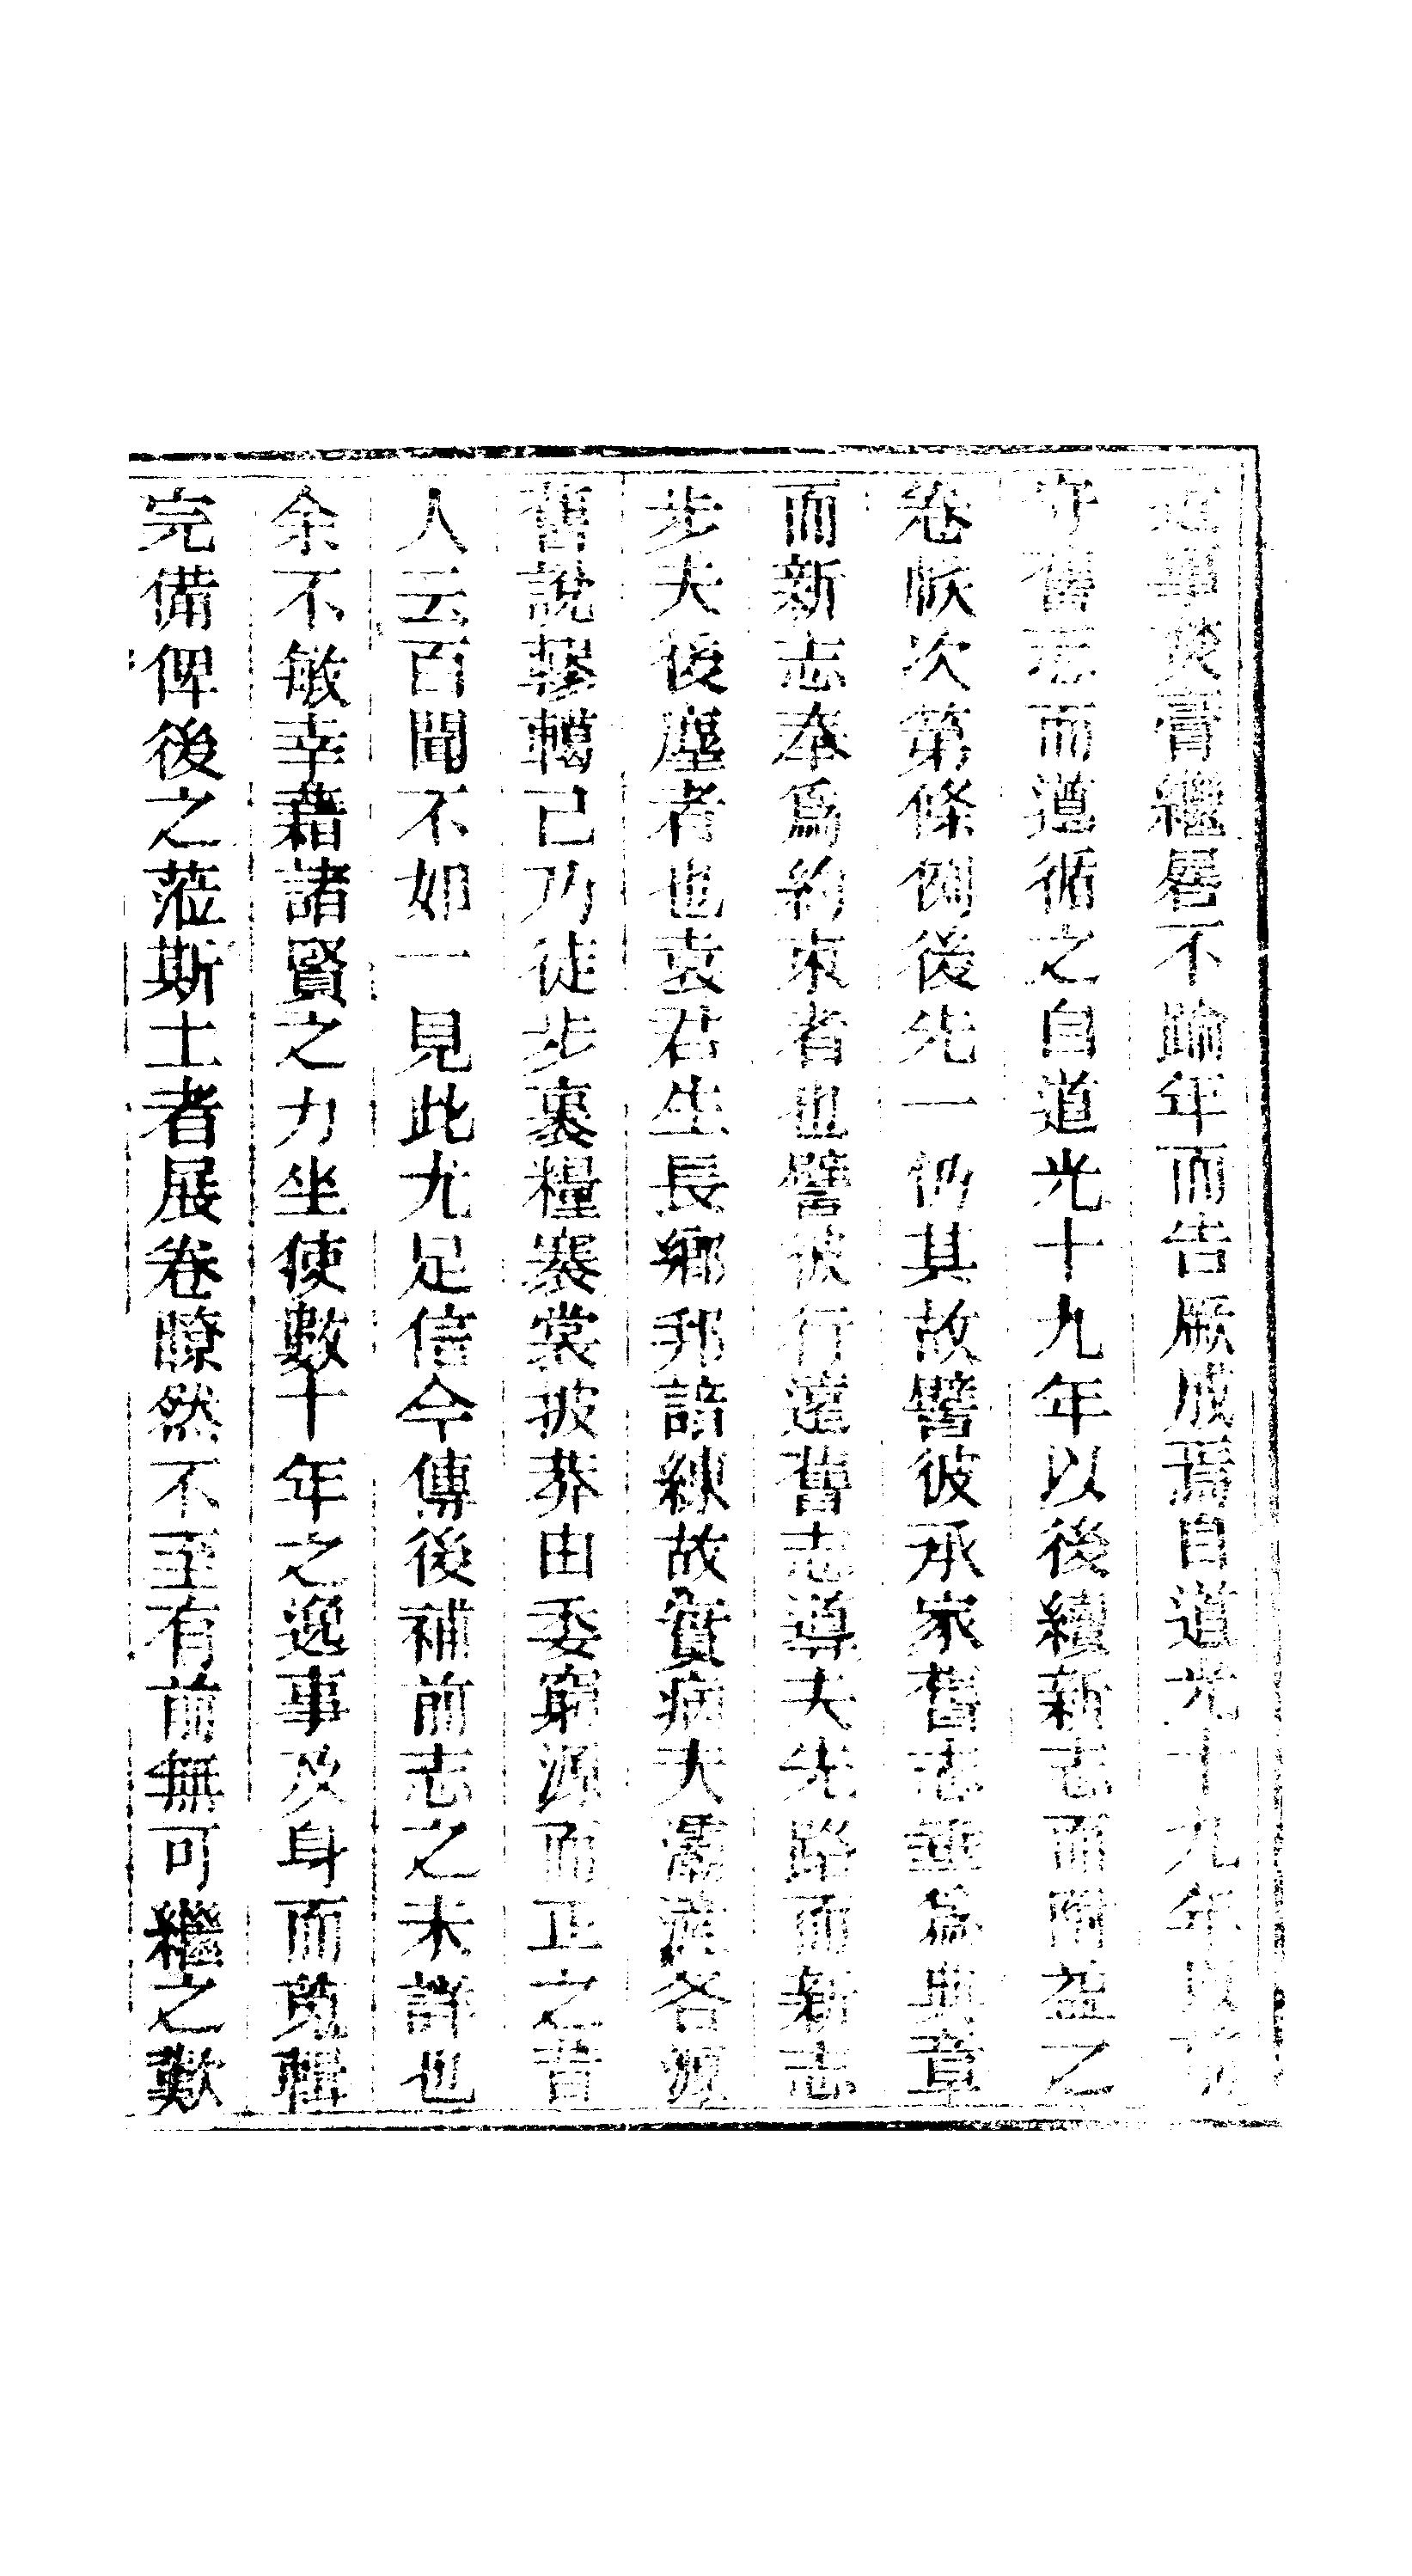 畢焚膏繼晷不踰年而告厥成焉自道光十九年以前
守舊志而遵循之自道光十九年以後續新志而附益之
卷帙次第條例後先一仍其故譬彼承家舊志垂爲典章
而新志奉爲約束者也譬彼行遠舊志導夫先路而新志
步夫後塵者也袁君生長鄉邦諳練故實病夫灞滻各源
舊說轇轕己乃徒步裹糧褰裳披莽由委窮源而正之昔
人云百聞不如一見此尤足信今傳後補前志之未詳也
余不敏幸藉諸賢之力坐使數十年之逸事及身而蒐輯
完備俾後之蒞斯土者展卷瞭然不至有前無可繼之歎